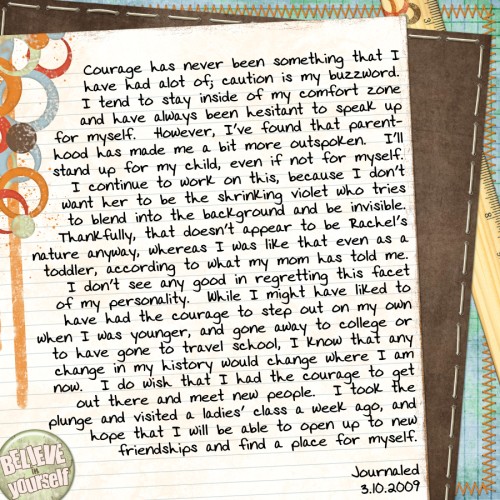 Courage has never been something that I
have had alot of; caution is my buzzword.
I tend to stay inside of my comfort zone
and have always been hesitant to speak up
for myself. However, I've found that parent-
hood has made me a bit more outspoken. I'll
stand up for my child, even if not for myself.
I continue to work on this, because I don't
want her to be the shrinking violet who tries
to blend into the background and be invisible.
Thankfully, that doesn't appear to be Rachel's
nature anyway, whereas I was like that even as a
toddler, according to what my mom has told me.
I don't see any good in regretting this facet
of my personality. While I might have liked to
have had the courage to step out on my own
when I was younger, and gone away to college or
to have gone to travel school, I know that any
change in my history would change where I am
now. I do wish that I had the courage to get
out there and meet new people. I took the
plunge and visited a ladies' class a week ago, and
hope that I will be able to open up to new
friendships and find a place for myself.
Journaled
3.10.2009
BELIEVE
in
yourself